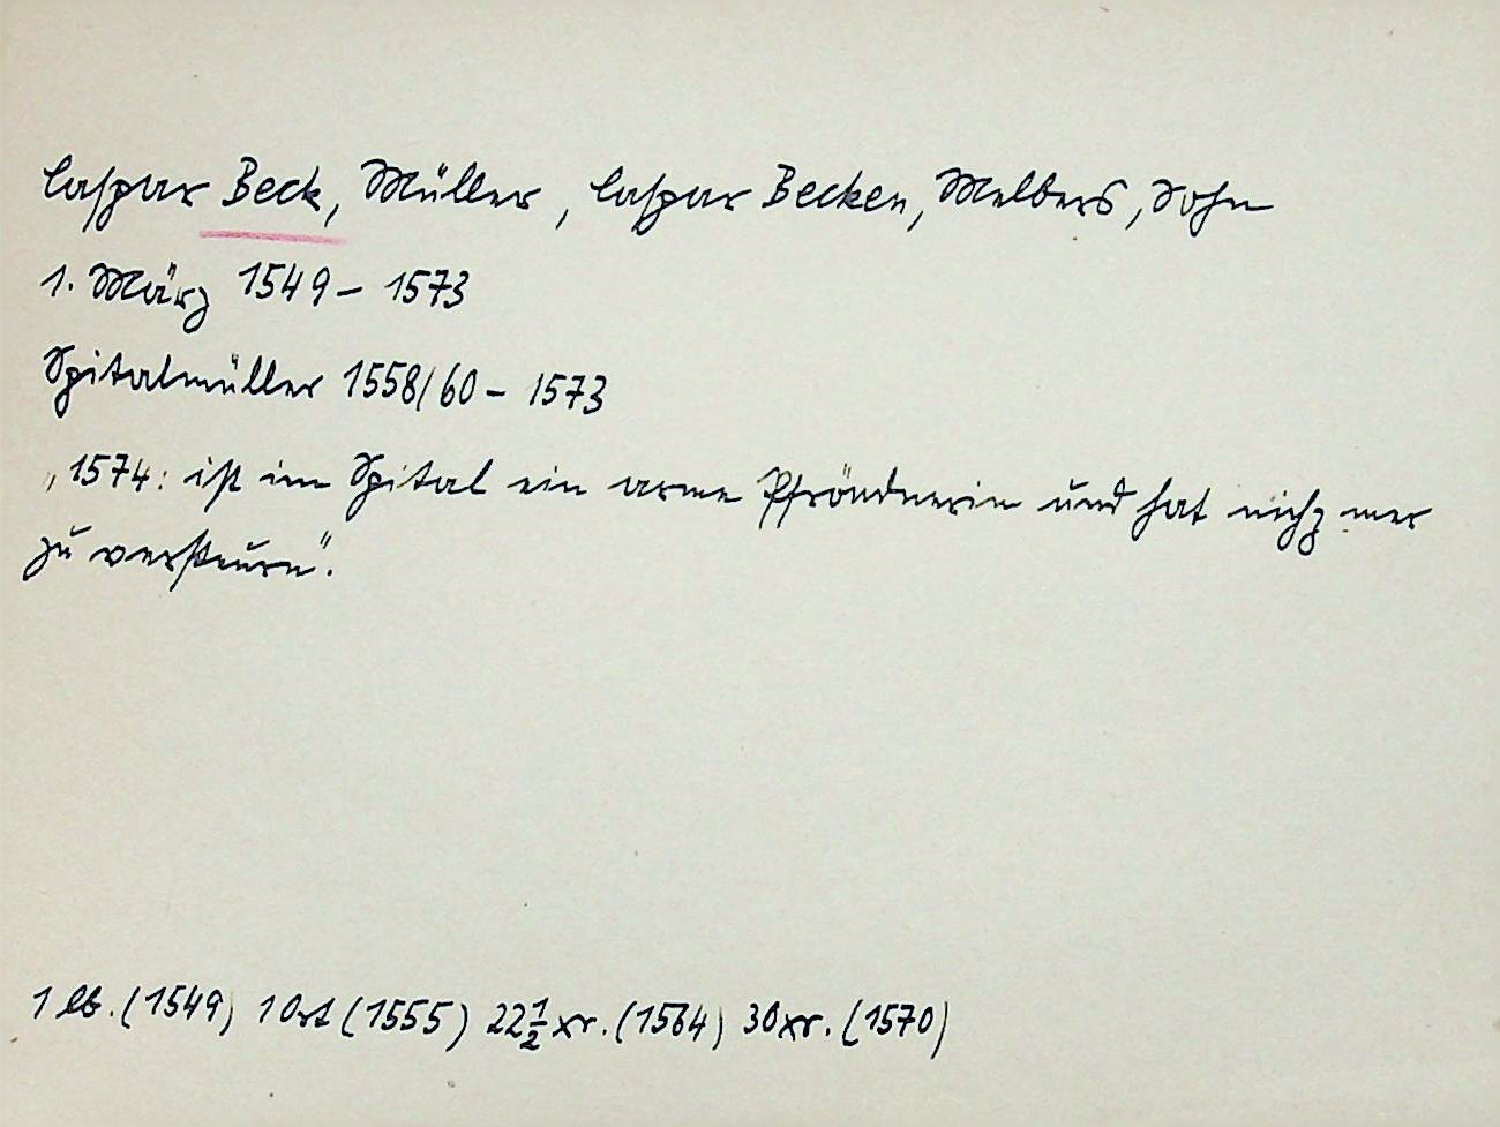 Caspar Beck, Müller, Caspar Becken, Melbers, Sohn
1. März 1549 – 1573
Spitalmüller 1558/60 – 1573
„1574: ist im Spital ein arme Pfröndnerin und hat nichz mer
zu versteurn".
1 lb. (1549) 1 Ort (1555) 22 1/2 xr. (1564) 30 xr. (1570)